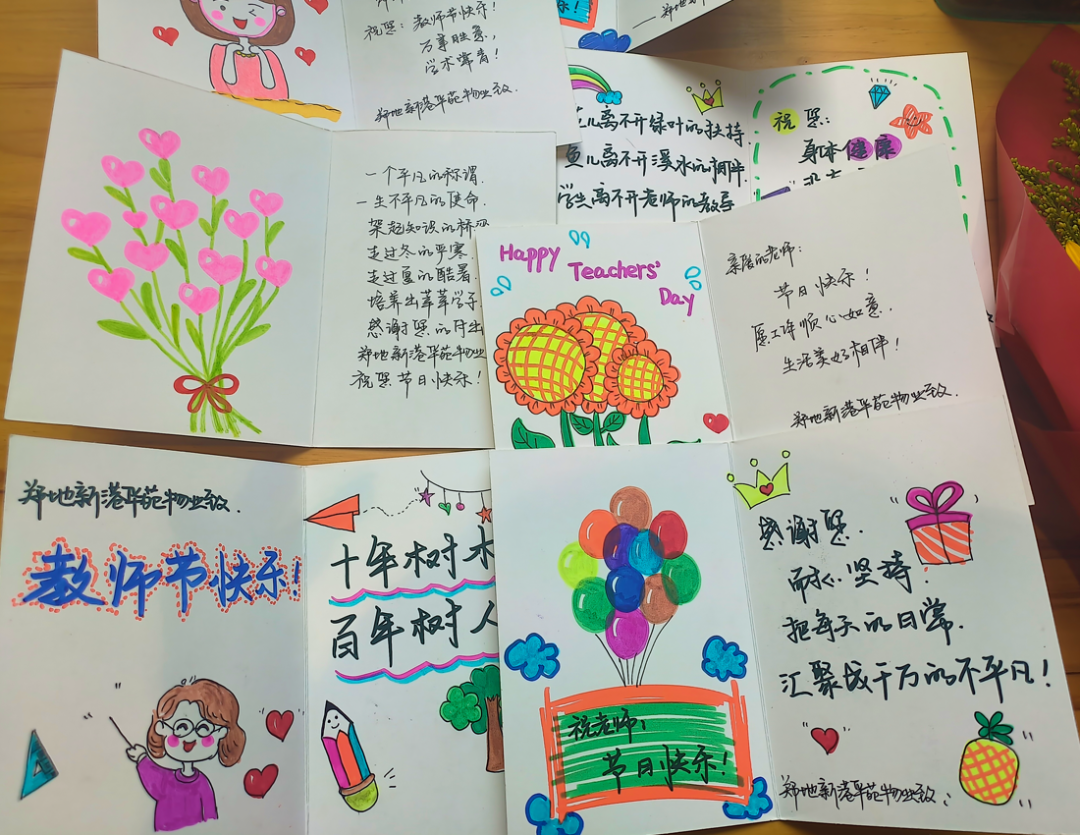 祝您：教师节快乐！
万事胜意，
学术常青！
郑地新港华苑物业致.
花儿离不开绿叶的扶持
鱼儿离不开溪水的相伴.
学生离不开老师的教导
祝您：
身体健康
一个平凡的称谓.
一生不平凡的使命.
架起知识的桥梁
走过冬的严寒.
走过夏的酷暑.
培养出莘莘学子
感谢您的付出
郑地新港华苑物业
祝您节日快乐！
Happy
Teachers'
Day
亲爱的老师：
节日快乐！
愿工作顺心如意.
生活美好相伴！
郑地新港华苑物业致.
郑地新港华苑物业致.
教师节快乐！
十年树木
百年树人
祝老师：
节日快乐！
感谢您.
耐心坚持.
把每天的日常.
汇聚成千万的不平凡！
郑地新港华苑物业致.